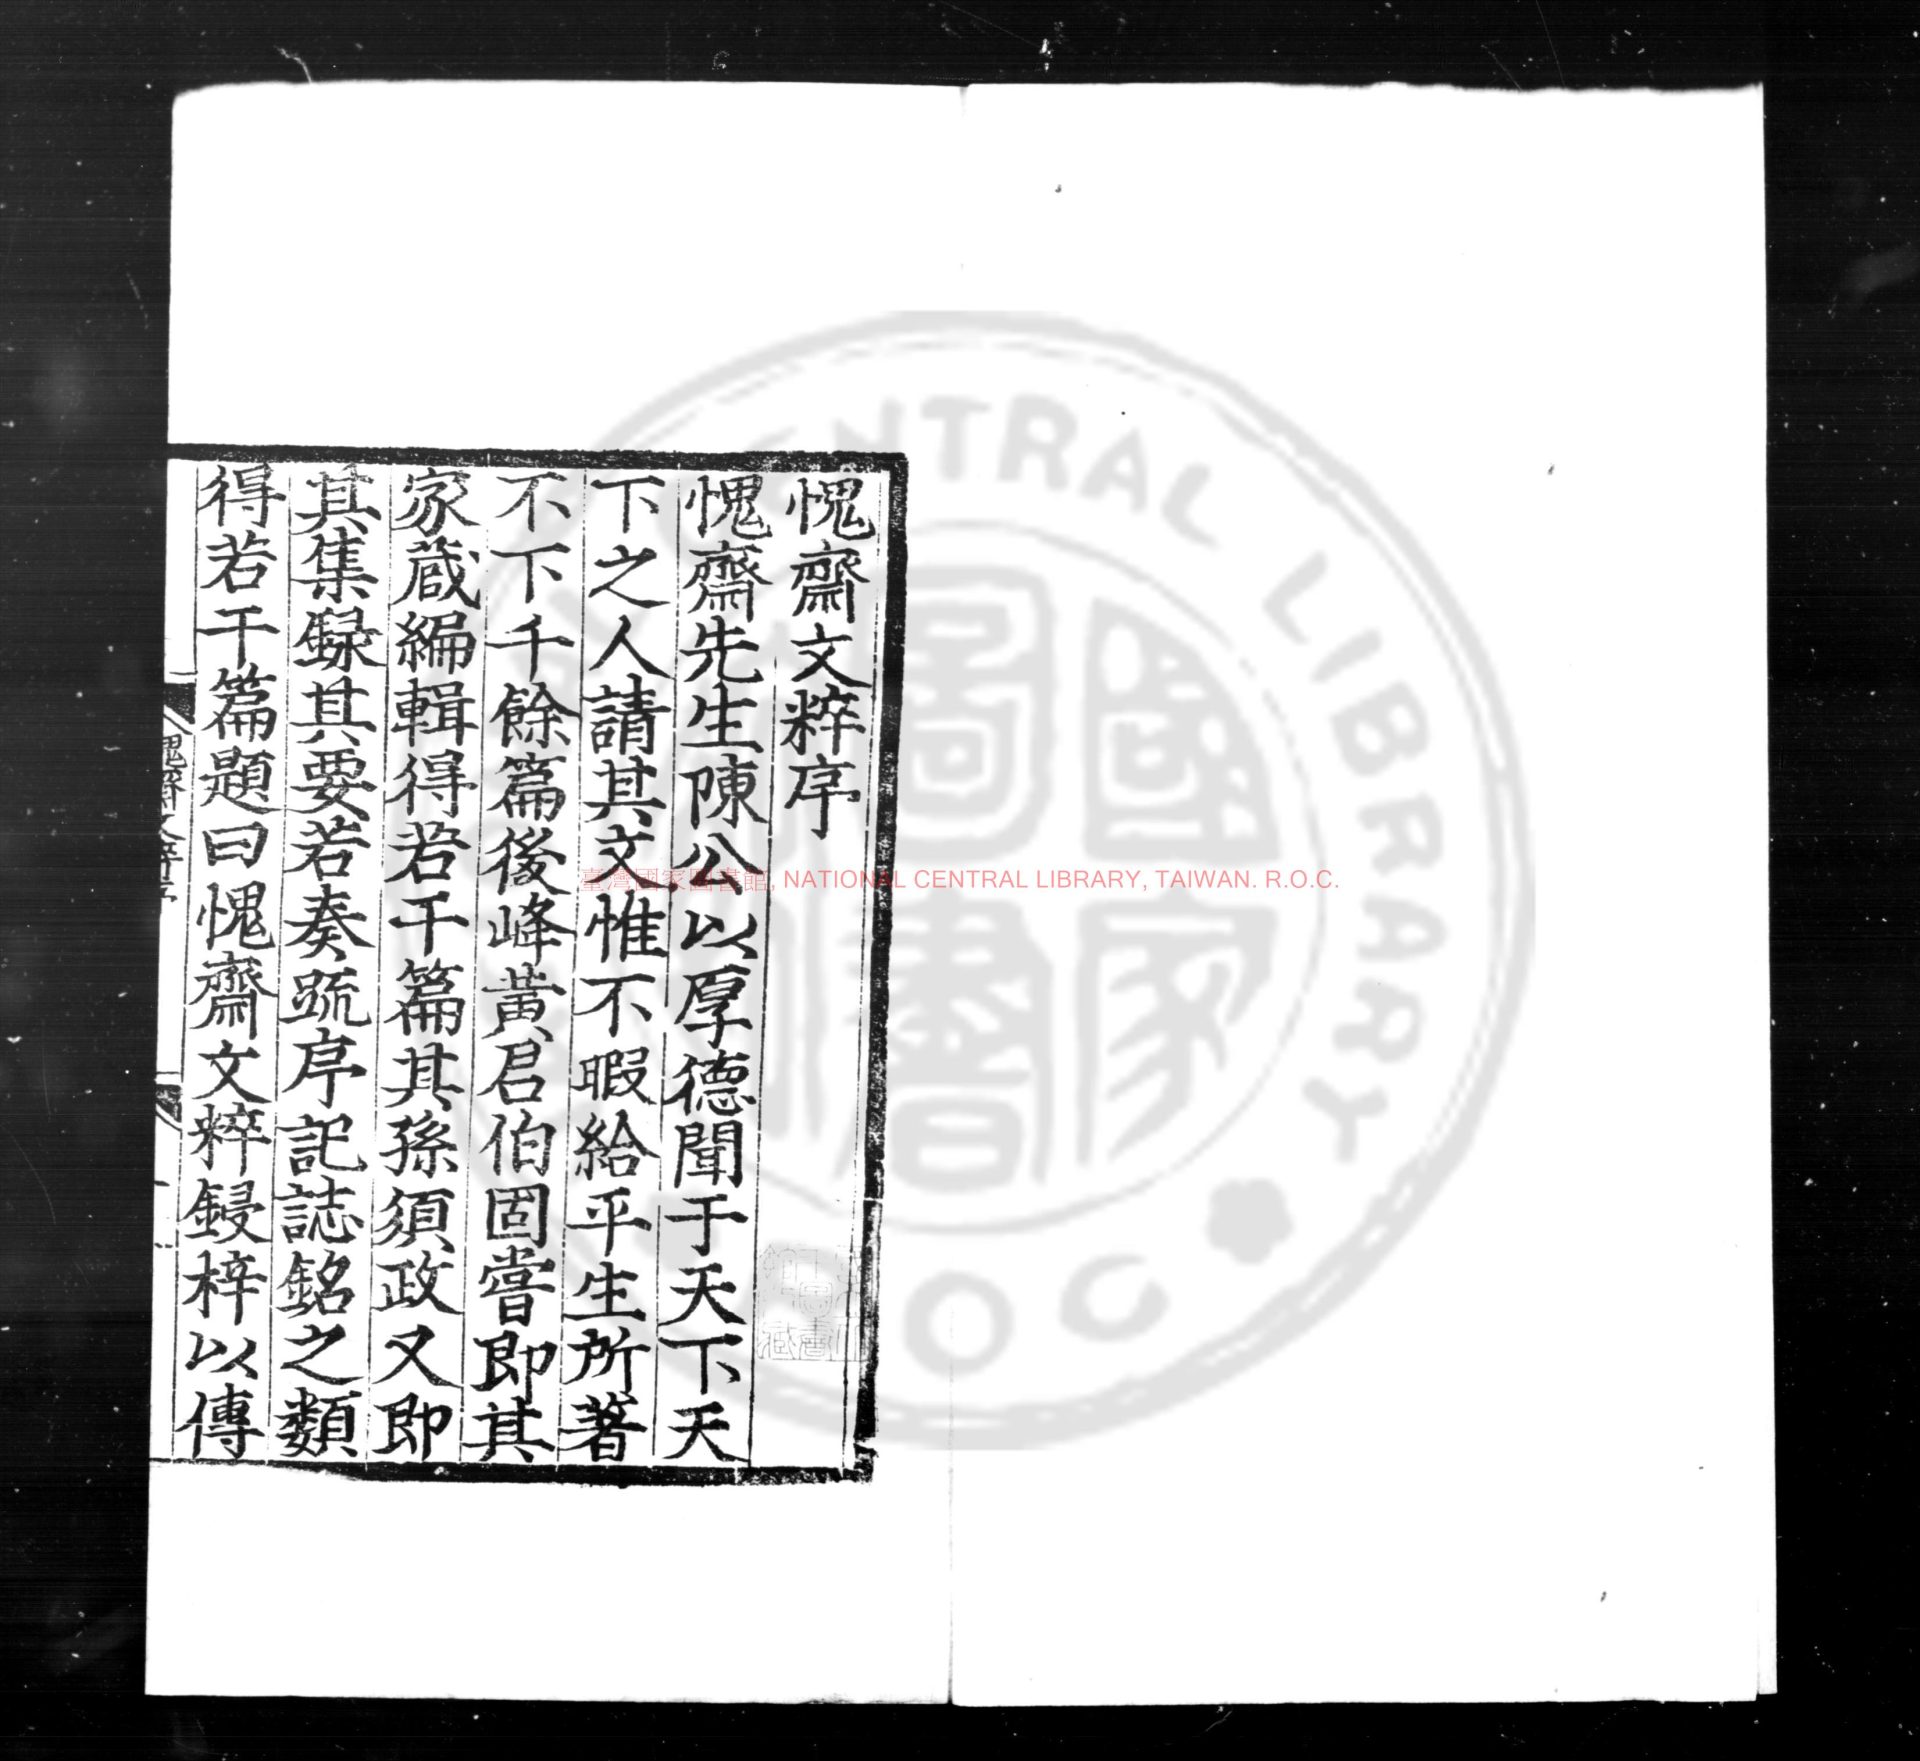 愧齋文粹序
愧齋先生陳公以厚德聞于天下天
下之人請其文惟不暇給平生所著
不下千餘篇後峰黃君伯固嘗即其
家蔵編輯得若干篇其孫須政又即
其集録其要若奏疏序記誌銘之類
得若干篇題曰愧齋文粹鋟梓以傳
愧齋文粹序
臺灣國家圖書館, NATIONAL CENTRAL LIBRARY, TAIWAN. R.O.C.